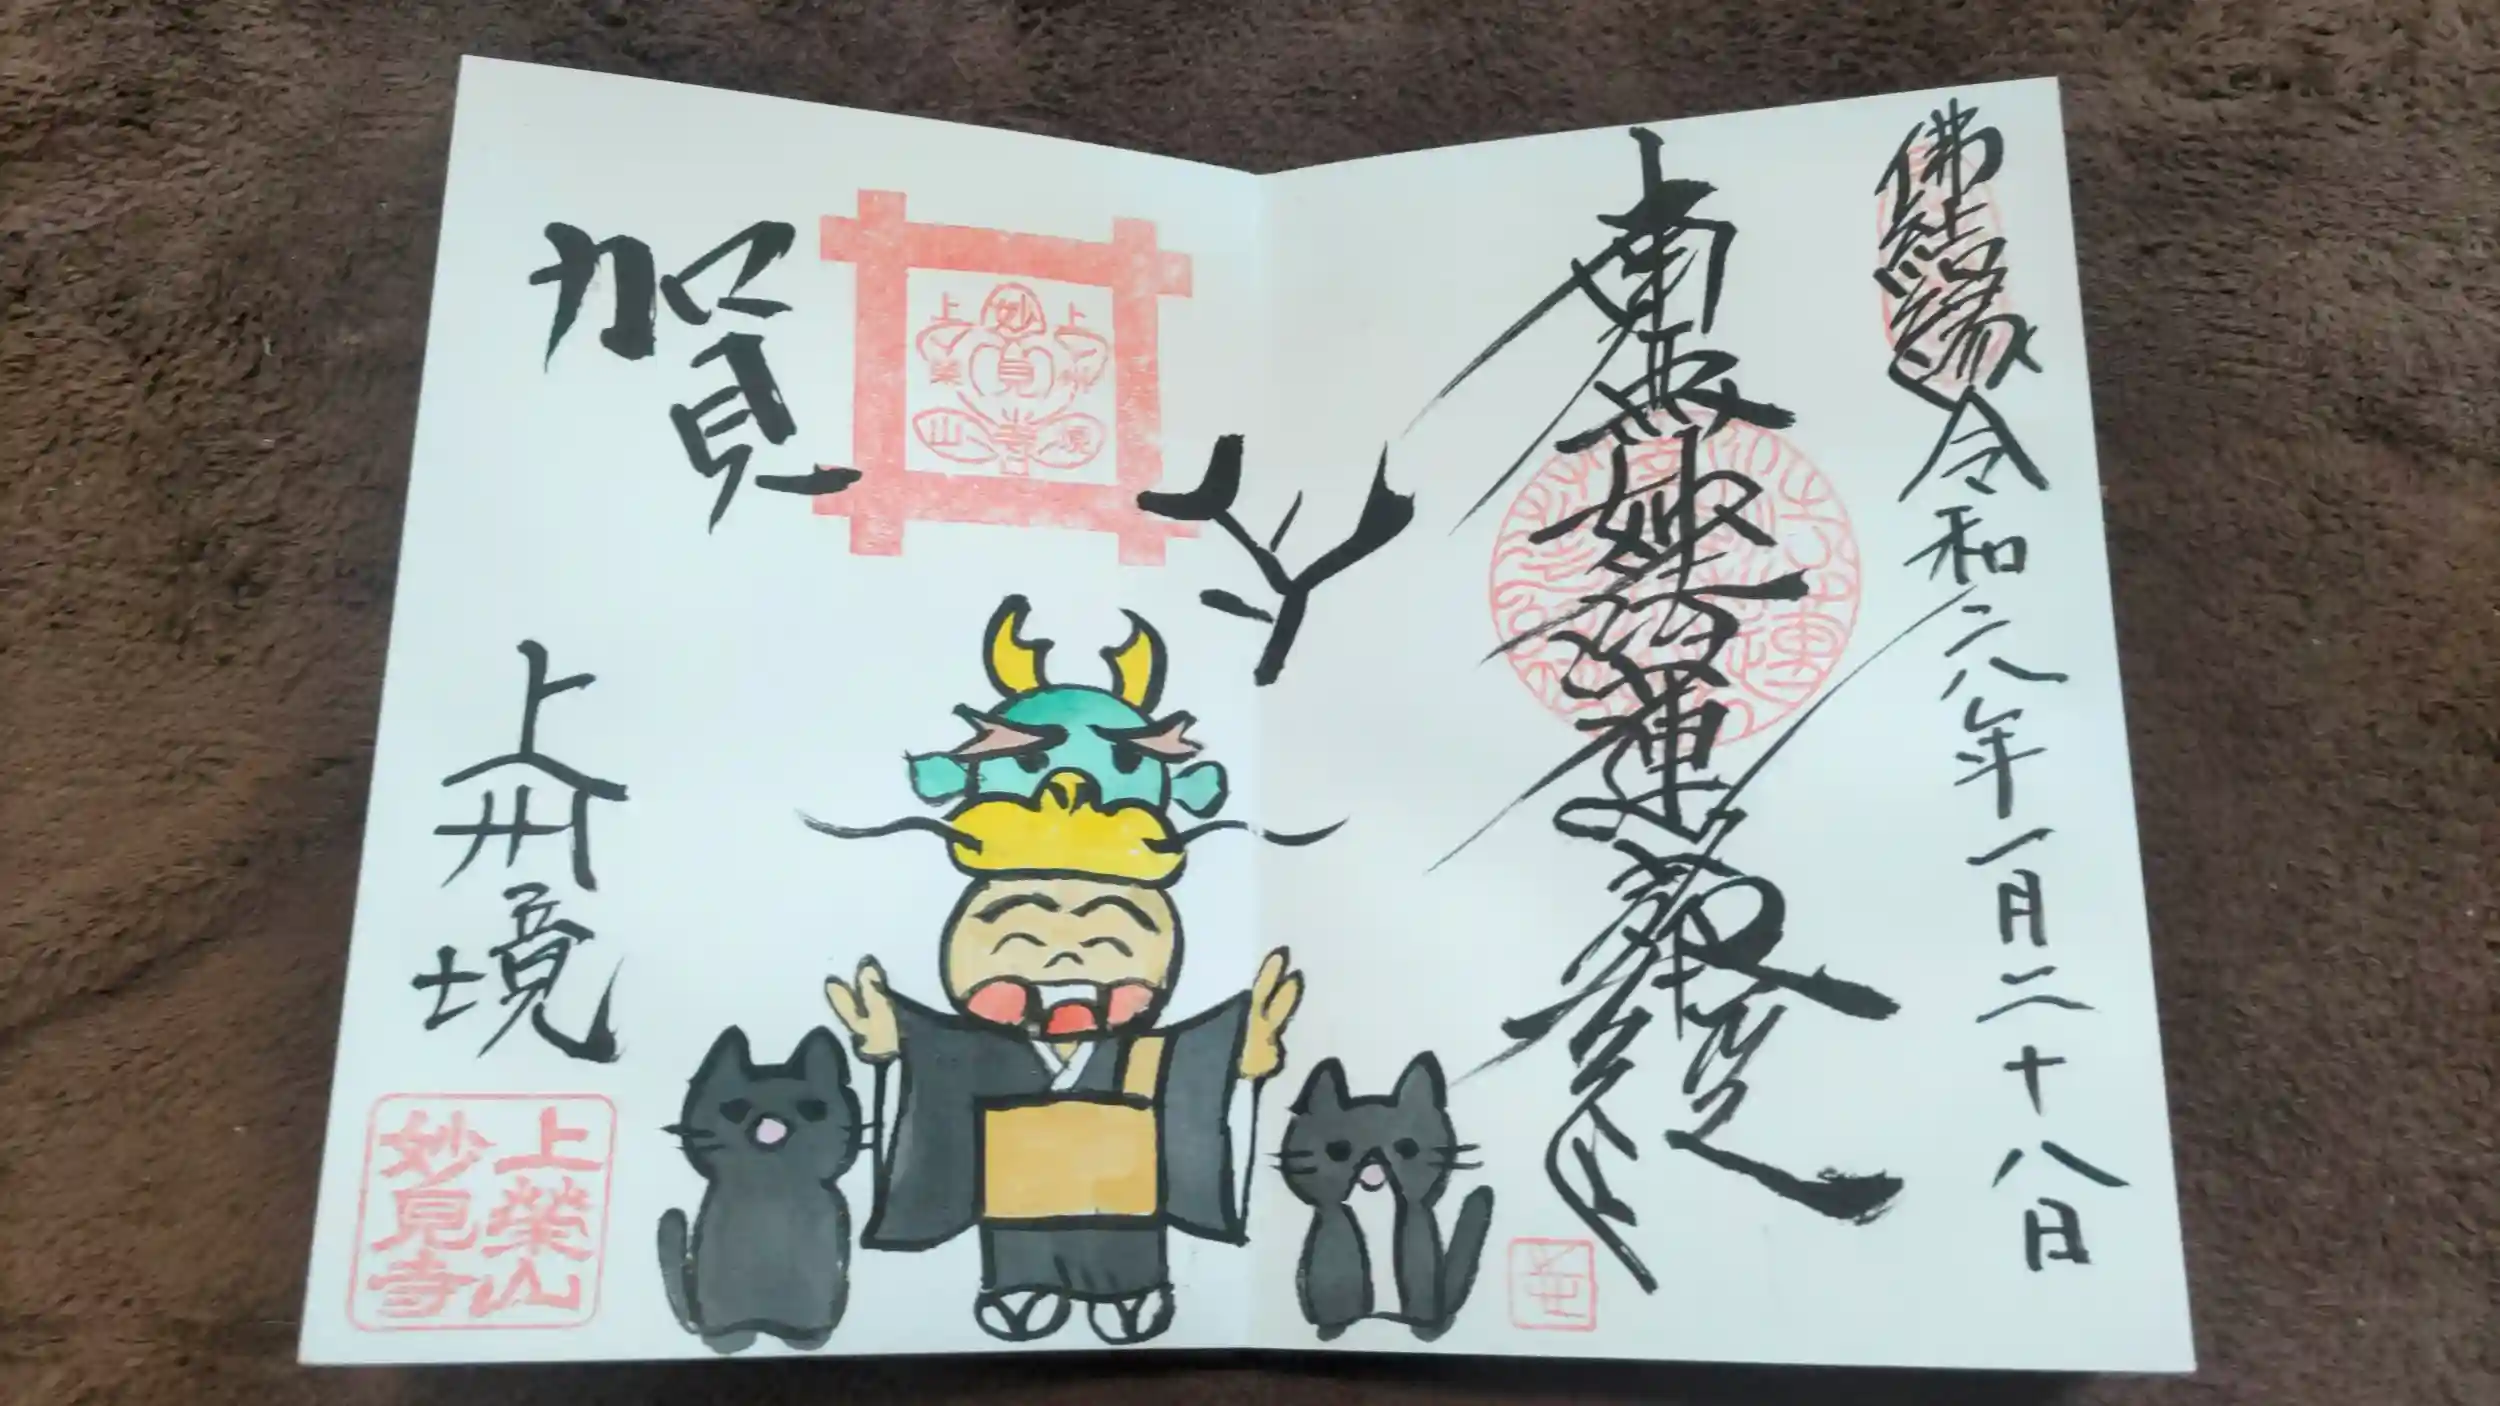 佛結縁 令和六年一月二十八日
南無妙法蓮華経
賀
上州境
妙見寺
上榮山
上榮山
妙見寺